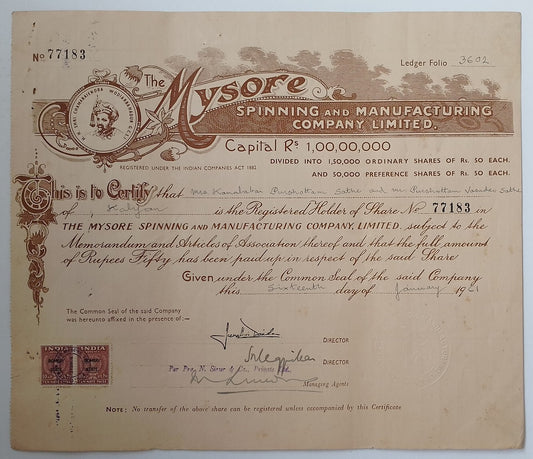 No 77183
Ledger Folio 3602
The Mysore
SPINNING AND MANUFACTURING
COMPANY LIMITED.
Capital Rs 1,00,00,000
REGISTERED UNDER THE INDIAN COMPANIES ACT 1882
DIVIDED INTO 1,50,000 ORDINARY SHARES OF Rs. 50 EACH.
AND 50,000 PREFERENCE SHARES OF Rs. 50 EACH.
This is to Certify that Mrs Kamalabai Purshottam Sathe and Mr Purshottam Vasudev Sathe
of Kalyan is the Registered Holder of Share No 77183 in
THE MYSORE SPINNING AND MANUFACTURING COMPANY, LIMITED. subject to the
Memorandum and Articles of Association thereof and that the full amount
of Rupees Fifty has been paid up in respect of the said Share
Given under the Common Seal of the said Company
this Sixteenth day of January 1961
The Common Seal of the said Company
was hereunto affixed in the presence of:—
DIRECTOR
DIRECTOR
Per Pro. N. Sirur & Co., Private Ltd.
Managing Agents
INDIA INDIA
NOTE: No transfer of the above share can be registered unless accompanied by this Certificate